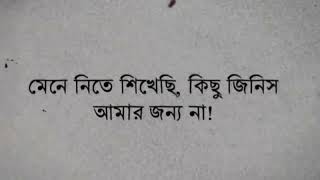 মেনে নিতে শিখেছি, কিছু জিনিস
আমার জন্য না!